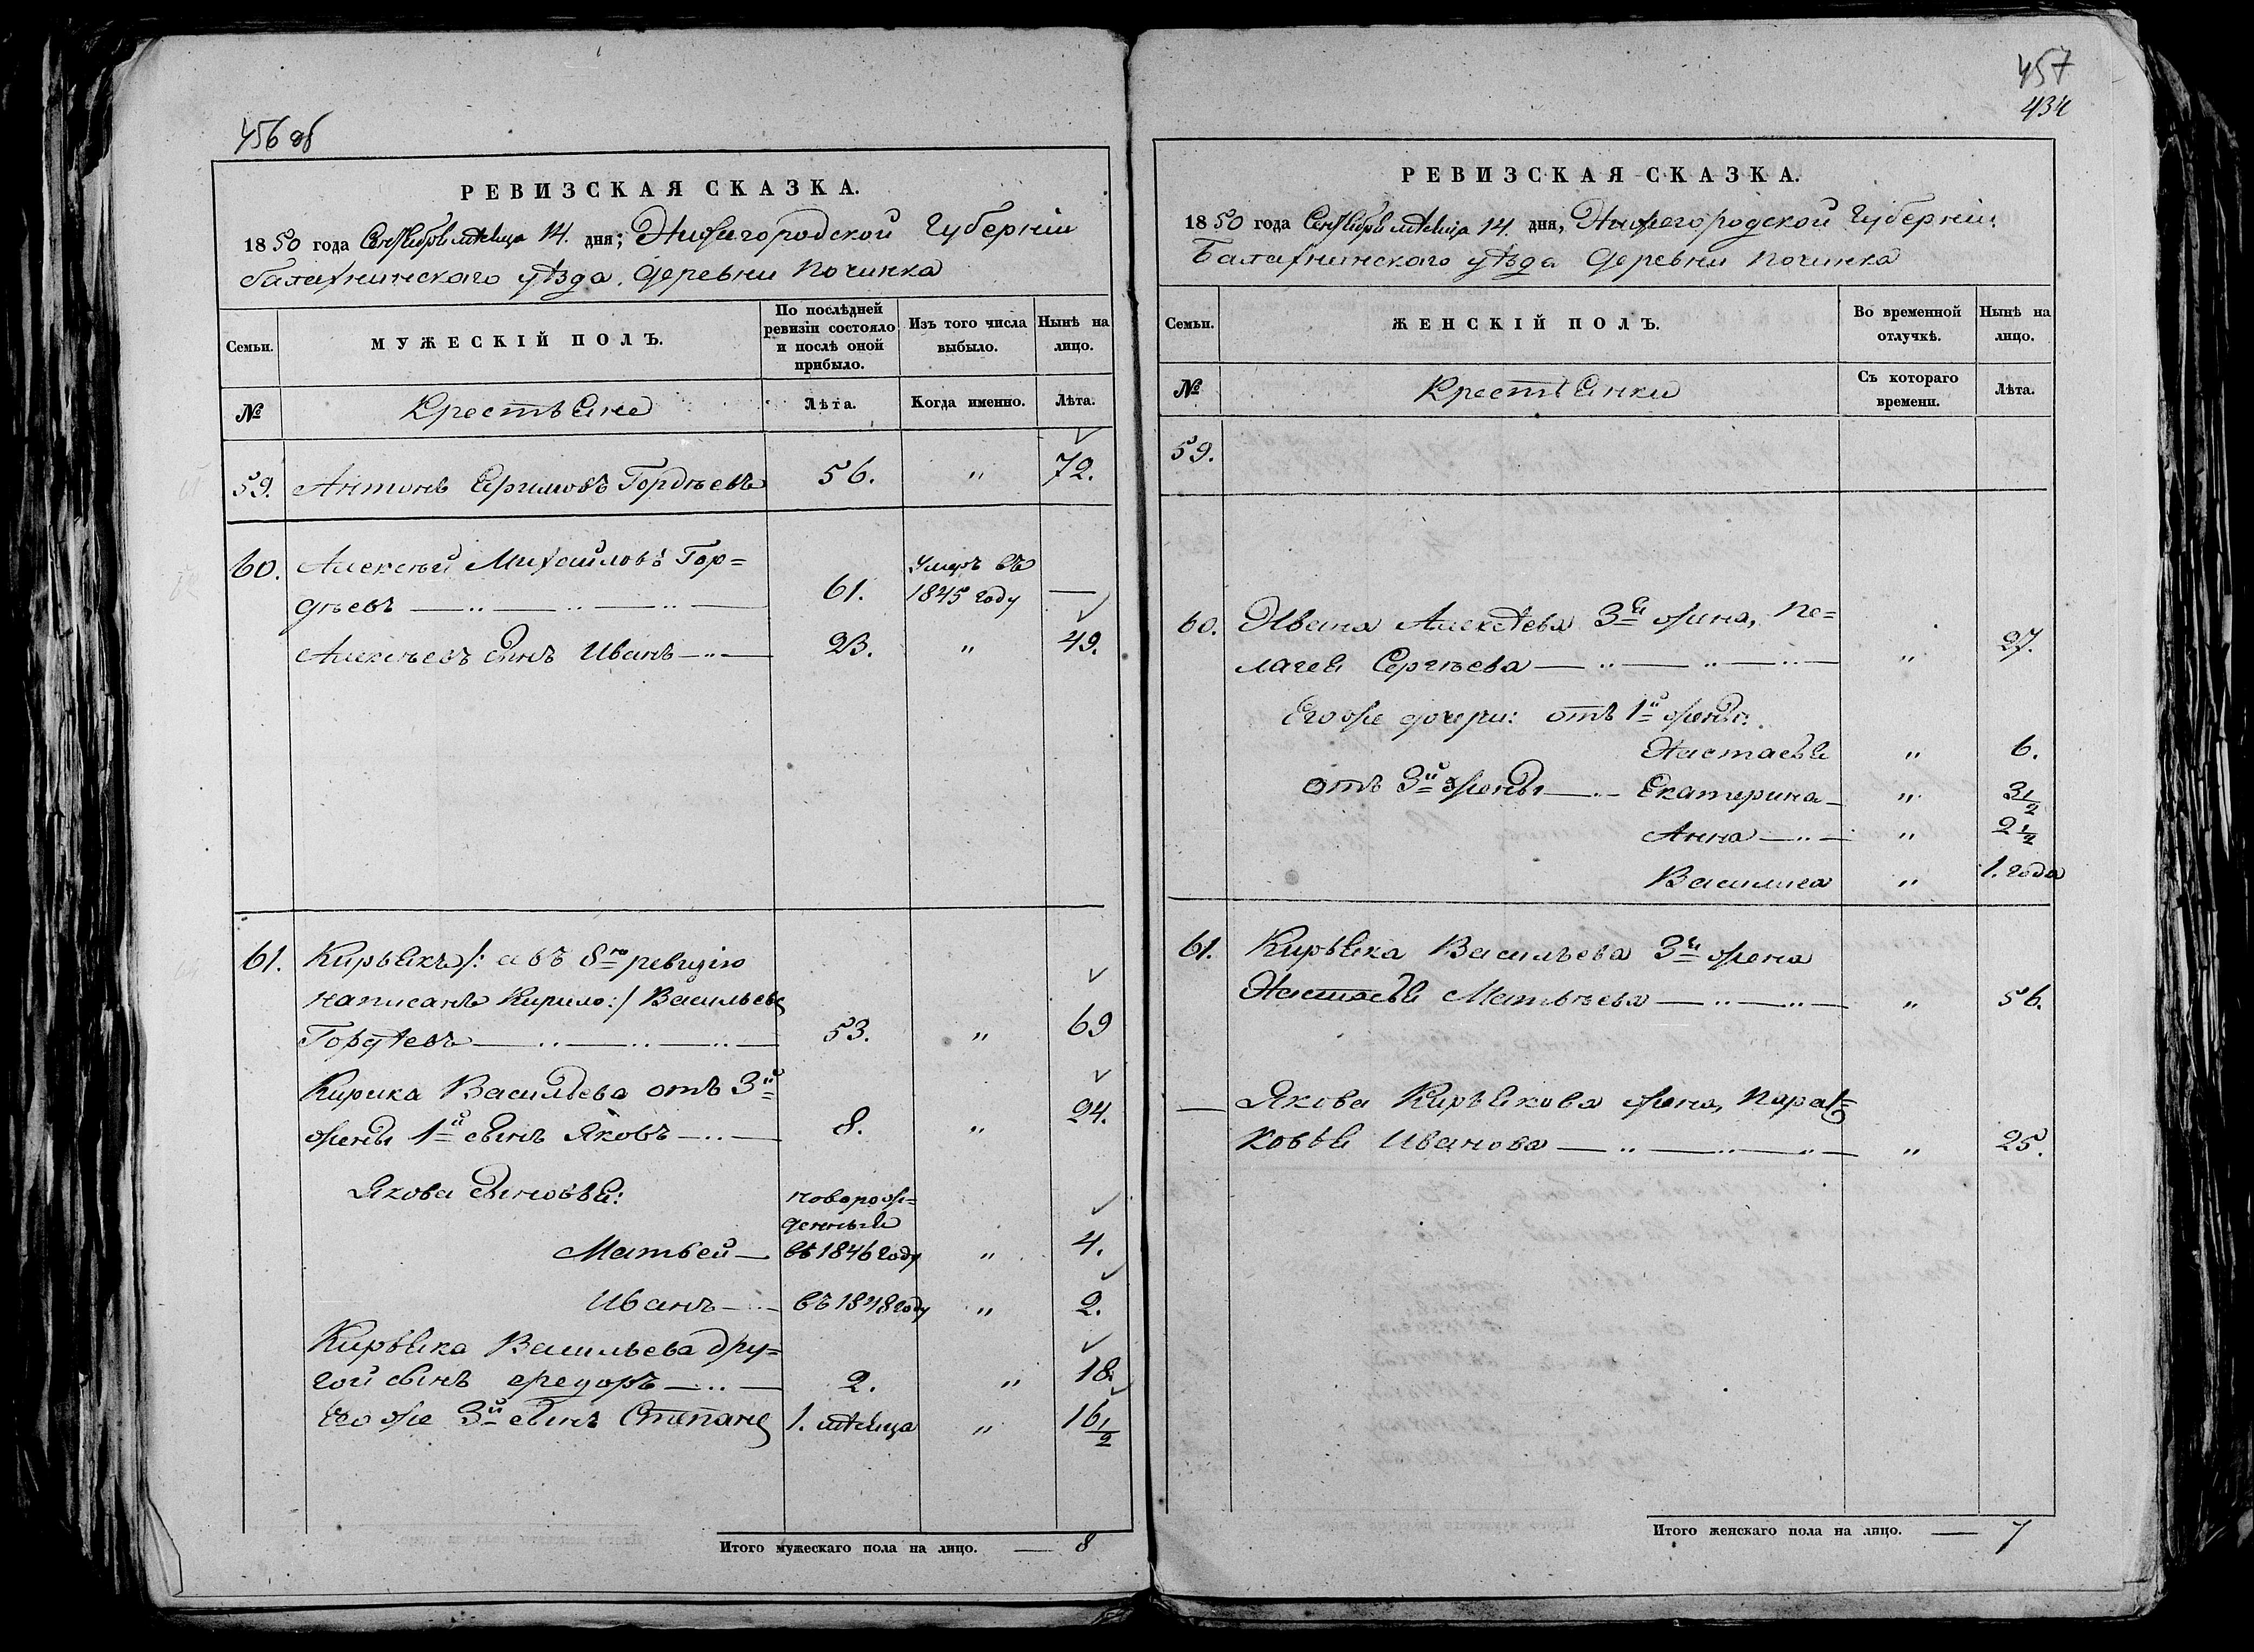 456 об
РЕВИЗСКАЯ СКАЗКА.
1850 года Сентября месяца 14. дня; Нижегородской Губернiи
Балахнинскаго уѣзда. Деревни Починка
Семьи.
МУЖЕСКІЙ ПОЛЪ.
По послѣдней ревизіи состояло и послѣ оной прибыло.
Изъ того числа выбыло.
Нынѣ на лицо.
№
Крестьяне
Лѣта.
Когда именно.
Лѣта.
59. Антонъ Ефимовъ Гордѣевъ 56. " 72.
60. Алексѣй Михайловъ Гор=
дѣевъ 61. Умеръ въ 1845 году —
Алексѣевъ сынъ Иванъ 23. " 49.
61. Кирьякъ /: а въ 8ю ревизiю
написанъ Кирило :/ Васильевъ
Гордѣевъ 53. " 69
Кирика Васильева отъ 3й
жены 1й сынъ Яковъ 8. " 24.
Якова сыновья: новорож=
денный
Матвей въ 1846 году " 4.
Иванъ въ 1848 году " 2.
Кирьяка Васильева дру=
гой сынъ Ѳедоръ 2. " 18.
Его же 3й сынъ Степанъ 1. месяца " 16 1/2
Итого мужескаго пола на лицо. — 8
457
434
РЕВИЗСКАЯ СКАЗКА.
1850 года Сентября месяца 14. дня, Нижегородской Губернiи.
Балахнинскаго уѣзда Деревни Починка
Семьи.
ЖЕНСКІЙ ПОЛЪ.
Во временной отлучкѣ.
Нынѣ на лицо.
№
Крестьянки
Съ котораго времени.
Лѣта.
59.
60. Ивана Алексѣева 3я жена, Пе=
лагея Сергѣева " 27.
Его же дочери: отъ 1й жены:
Настасья " 6.
отъ 3й жены Екатерина " 3 1/2
Анна " 2 1/2
Василиса " 1. года
61. Кирьяка Васильева 3я жена
Настасья Матвѣева " 56.
— Якова Кирьякова жена, Параs=
ковья Иванова " 25.
Итого женскаго пола на лицо. — 7